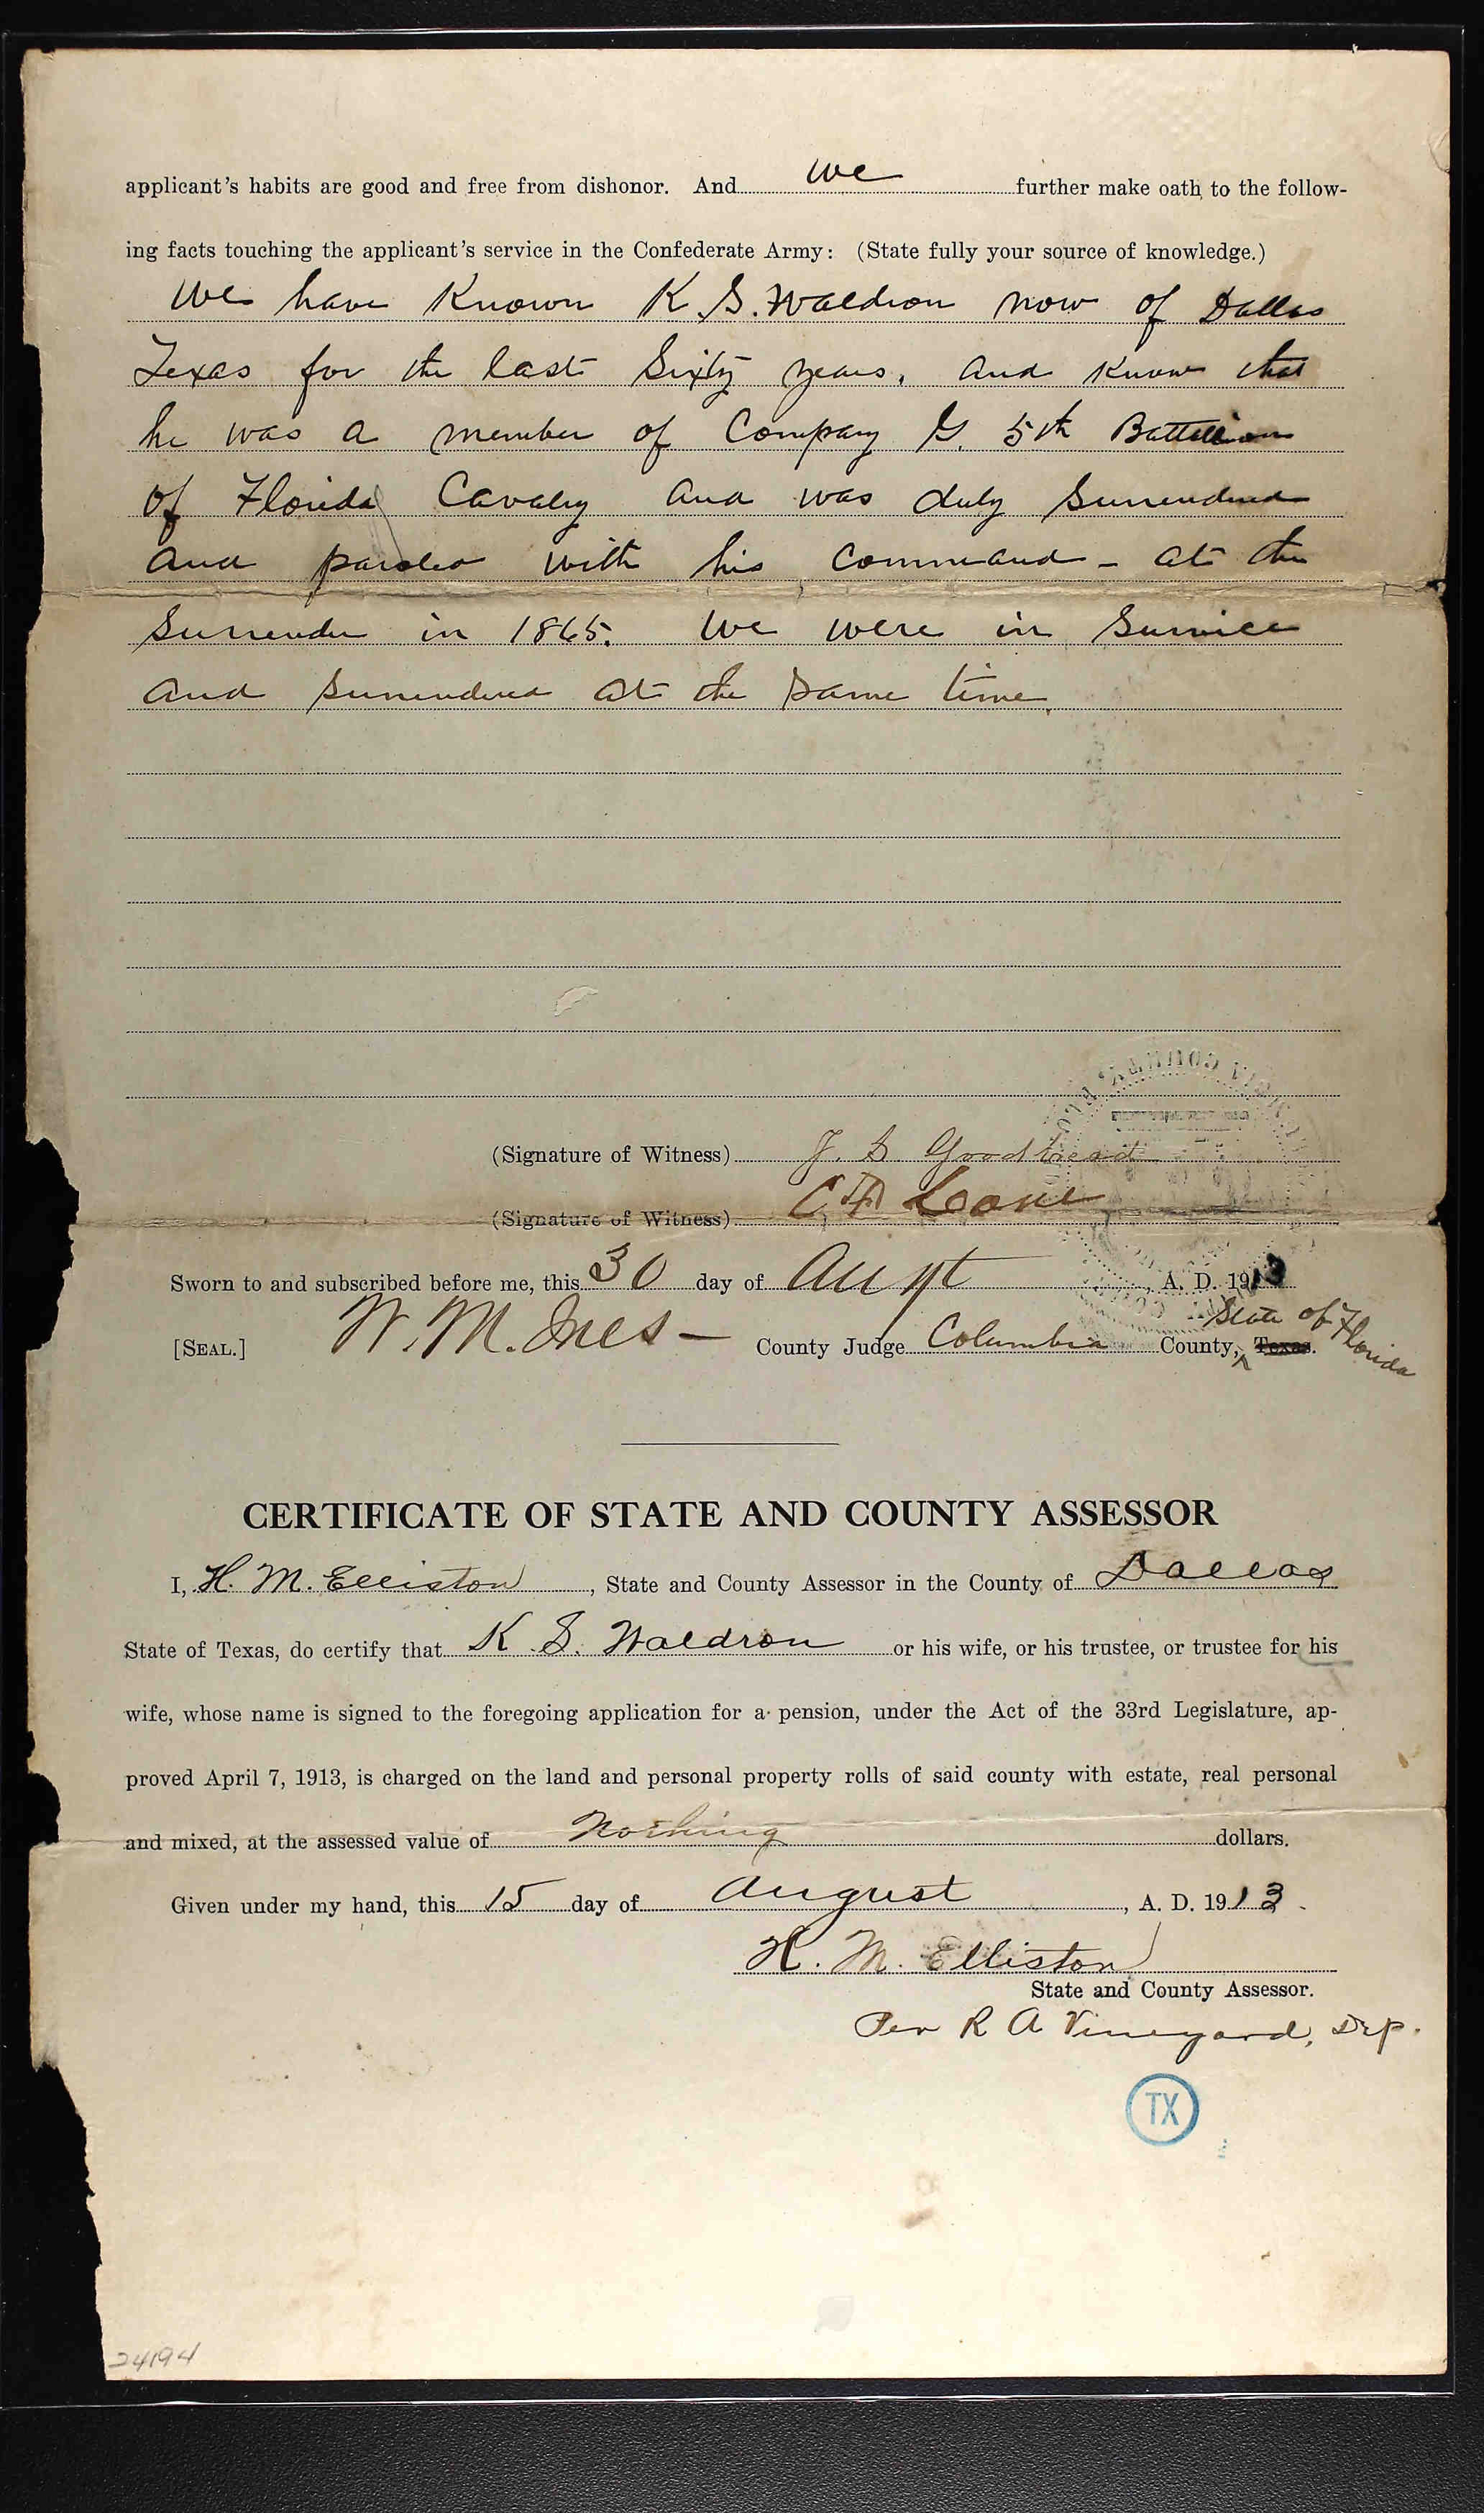 applicant's habits are good and free from dishonor. And we further make oath to the follow-
ing facts touching the applicant's service in the Confederate Army: (State fully your source of knowledge.)
We have Known K. S. Waldron now of Dallas
Texas for the last Sixty years, and Know that
he was a member of Company G. 5th Battalion
of Florida Cavalry and was duly Surrendered
and paroled with his command - at the
Surrender in 1865. We were in Survice
and surrendered at the same time.
(Signature of Witness) J. S. Goodbread
(Signature of Witness) Lane
Sworn to and subscribed before me, this 30 day of Augt A. D. 1913
[SEAL.] W. M. Ives - County Judge Columbia County, State of Florida Texas.
CERTIFICATE OF STATE AND COUNTY ASSESSOR
I, H. M. Elliston, State and County Assessor in the County of Dallas
State of Texas, do certify that K. S. Waldron or his wife, or his trustee, or trustee for his
wife, whose name is signed to the foregoing application for a pension, under the Act of the 33rd Legislature, ap-
proved April 7, 1913, is charged on the land and personal property rolls of said county with estate, real personal
and mixed, at the assessed value of Nothing dollars.
Given under my hand, this 15 day of August, A. D. 1913.
H. M. Elliston
State and County Assessor.
Per R A Vineyard, Dep.
TX
24194